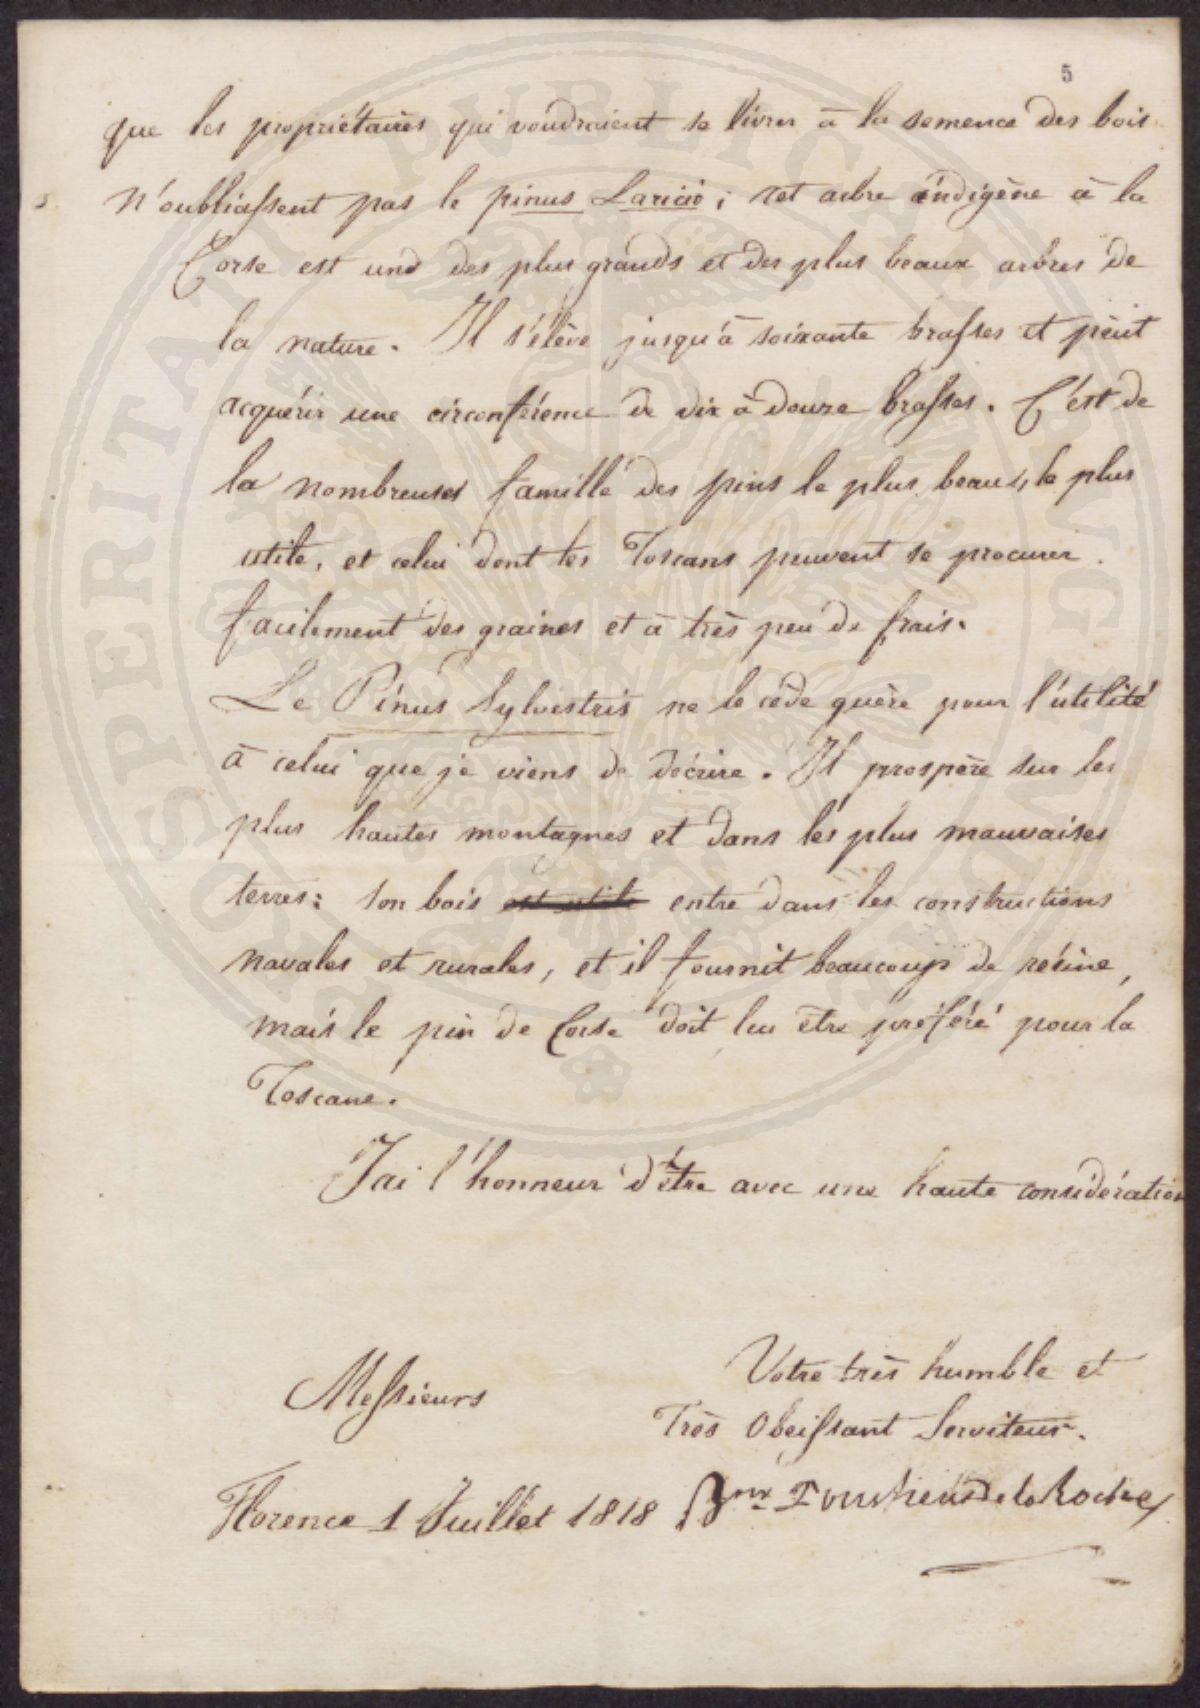 5
que les propriétaires qui voudraient se livrer à la semence des bois
n'oubliassent pas le pinus Laricio; cet arbre indigène à la
Corse est und des plus grands et des plus beaux arbres de
la nature. Il s'élève jusqu'à soixante brasses et peut
acquérir une circonférence de dix à douze brasses. C'est de
la nombreuse famille des pins le plus beau, le plus
utile, et celui dont les Toscans peuvent se procurer
facilement des graines et à très peu de frais.
Le Pinus Sylvestris ne le cède guère pour l'utilité
à celui que je viens de décrire. Il prospère sur les
plus hautes montagnes et dans les plus mauvaises
terres: son bois est utile entre dans les constructions
navales et rurales, et il fournit beaucoup de résine,
mais le pin de Corse doit lui être préféré pour la
Toscane.
J'ai l'honneur d'être avec une haute considération
Votre très humble et
Messieurs
Très Obeissant Serviteur.
Florence 1 Juillet 1818 de la Roche
PROSPERITATI PUBLICAE AUGENDAE